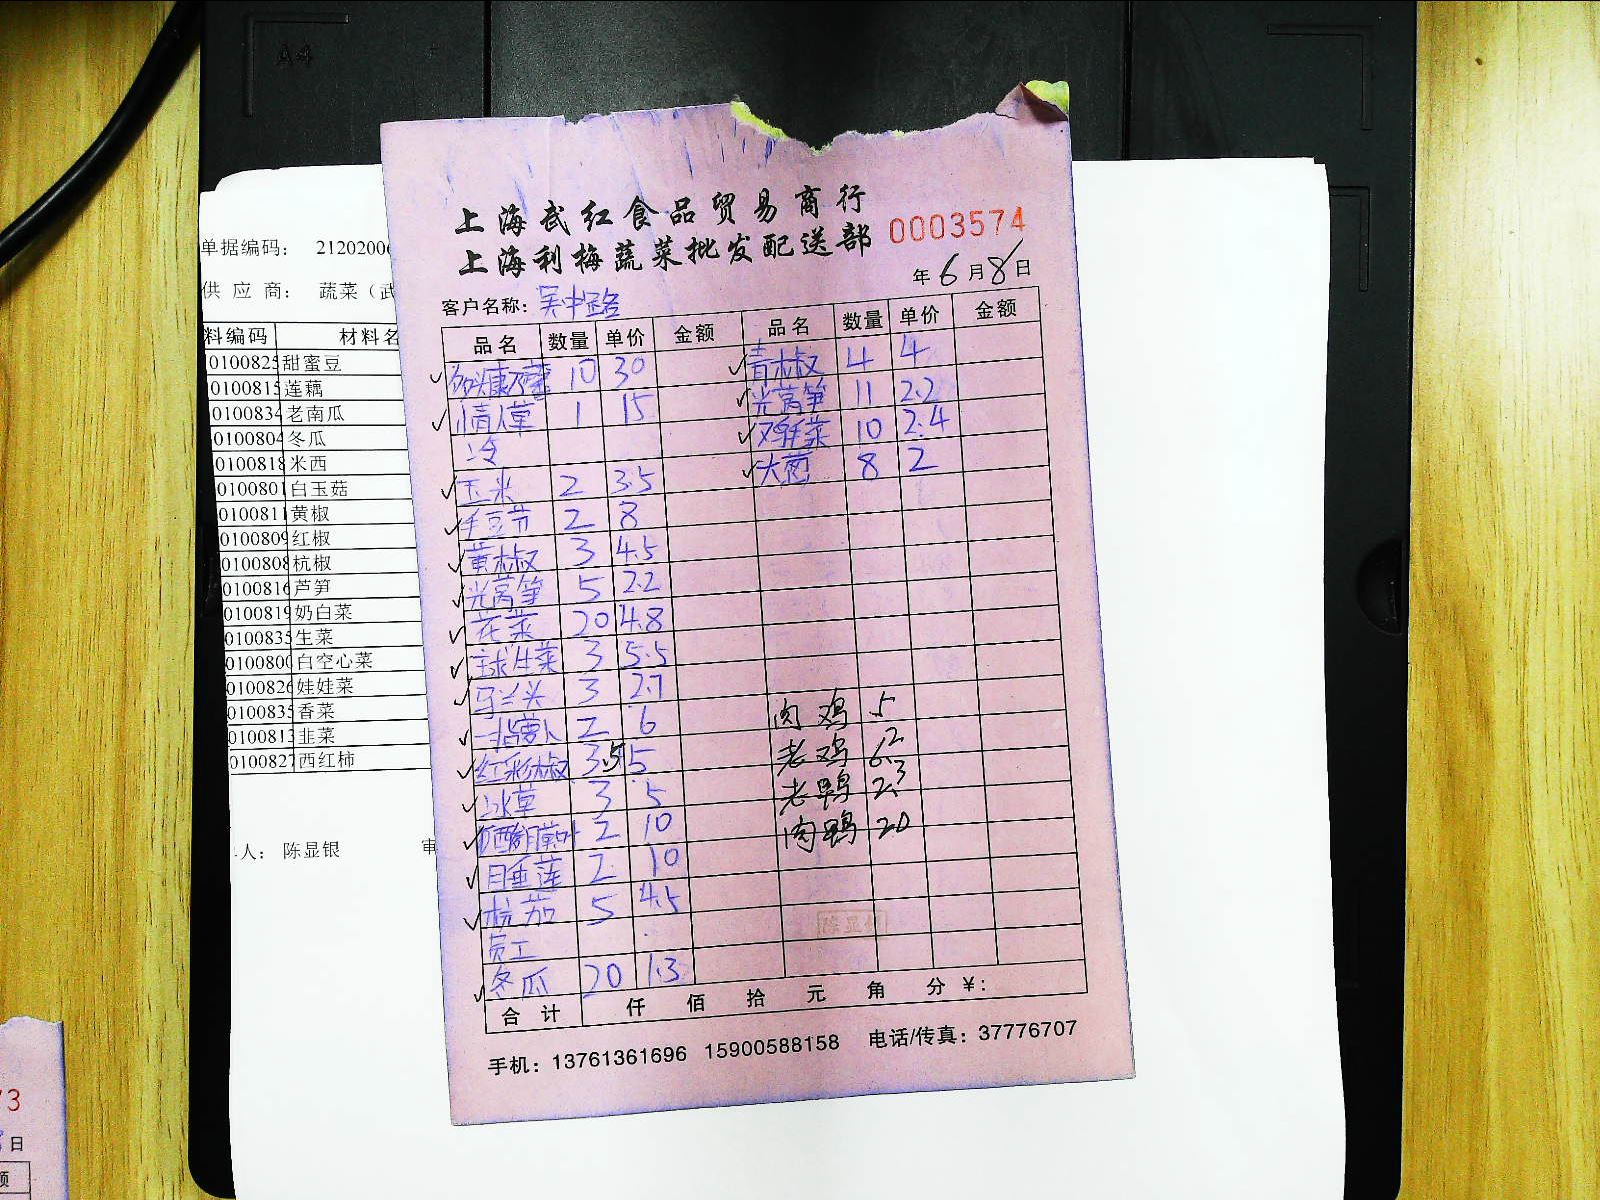 A4
单据编码： 21202006
供 应 商： 蔬菜（武
料编码 材料名
0100825 甜蜜豆
0100815 莲藕
0100834 老南瓜
0100804 冬瓜
0100818 米西
0100801 白玉菇
0100811 黄椒
0100809 红椒
0100808 杭椒
0100816 芦笋
0100819 奶白菜
0100835 生菜
0100800 白空心菜
0100826 娃娃菜
0100835 香菜
0100813 韭菜
0100827 西红柿
人： 陈显银 审
上海武红食品贸易商行
上海利梅蔬菜批发配送部 0003574
年 6 月 8 日
客户名称：吴中路
品名 数量 单价 金额 品名 数量 单价 金额
10 30
情人草 1 15
冷
玉米 2 3.5
毛豆节 2 8
黄椒 3 4.5
光莴笋 5 2.2
花菜 20 4.8
球生菜 3 5.5
马兰头 3 2.7
一指萝卜 2 6
红彩椒 3.5 5
冰草 3 5
2 10
睡莲 2 10
杭茄 5 4.5
员工
冬瓜 20 1.3
青椒 4 4
光莴笋 11 2.2
鸡毛菜 10 2.4
大葱 8 2
肉鸡 5
老鸡 6.2
老鸭 2.3
肉鸭 20
合 计 仟 佰 拾 元 角 分 ￥：
手机：13761361696 15900588158 电话/传真：37776707
73
日
额